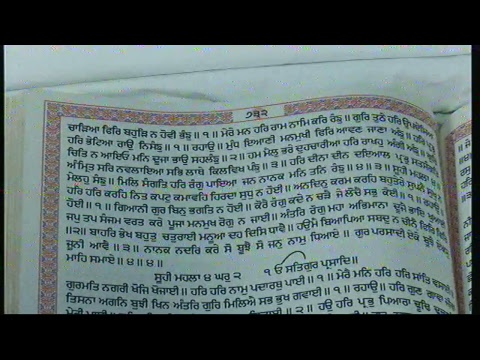 ੭੩੨
ਚਾੜਿਆ ਫਿਰਿ ਬਹੁੜਿ ਨ ਹੋਵੀ ਭੰਙੁ ॥ ੧ ॥ ਮੇਰੇ ਮਨ ਹਰਿ ਰਾਮ ਨਾਮਿ ਕਰਿ ਰੰਙੁ ॥ ਗੁਰਿ ਤੁਠੈ ਹਰਿ ਉਪਦੇਸਿਆ
ਹਰਿ ਭੇਟਿਆ ਰਾਉ ਨਿਸੰਙੁ ॥ ੧ ॥ ਰਹਾਉ ॥ ਮੁੰਧ ਇਆਣੀ ਮਨਮੁਖੀ ਫਿਰਿ ਆਵਣ ਜਾਣਾ ਅੰਙੁ ॥ ਹਰਿ ਪ੍ਰਭੁ
ਚਿਤਿ ਨ ਆਇਓ ਮਨਿ ਦੂਜਾ ਭਾਉ ਸਹਲੰਙੁ ॥ ੨ ॥ ਹਮ ਮੈਲੁ ਭਰੇ ਦੁਹਚਾਰੀਆ ਹਰਿ ਰਾਖਹੁ ਅੰਗੀ ਅੰਙੁ ॥ ਗੁਰਿ
ਅੰਮ੍ਰਿਤ ਸਰਿ ਨਵਲਾਇਆ ਸਭਿ ਲਾਥੇ ਕਿਲਵਿਖ ਪੰਙੁ ॥ ੩ ॥ ਹਰਿ ਦੀਨਾ ਦੀਨ ਦਇਆਲ ਪ੍ਰਭੁ ਸਤਸੰਗਤਿ
ਮੇਲਹੁ ਸੰਙੁ ॥ ਮਿਲਿ ਸੰਗਤਿ ਹਰਿ ਰੰਗੁ ਪਾਇਆ ਜਨ ਨਾਨਕ ਮਨਿ ਤਨਿ ਰੰਙੁ ॥ ੪ ॥ ੩ ॥ ਸੂਹੀ ਮਹਲਾ ੪ ॥
ਹਰਿ ਹਰਿ ਕਰਹਿ ਨਿਤ ਕਪਟੁ ਕਮਾਵਹਿ ਹਿਰਦਾ ਸੁਧੁ ਨ ਹੋਈ ॥ ਅਨਦਿਨੁ ਕਰਮ ਕਰਹਿ ਬਹੁਤੇਰੇ ਸੁਪਨੈ ਸੁਖੁ ਨ ਹੋਈ
॥ ੧ ॥ ਗਿਆਨੀ ਗੁਰ ਬਿਨੁ ਭਗਤਿ ਨ ਹੋਈ ॥ ਕੋਰੈ ਰੰਗੁ ਕਦੇ ਨ ਚੜੈ ਜੇ ਲੋਚੈ ਸਭੁ ਕੋਈ ॥ ੧ ॥ ਰਹਾਉ ॥
ਜਪੁ ਤਪ ਸੰਜਮ ਵਰਤ ਕਰੇ ਪੂਜਾ ਮਨਮੁਖ ਰੋਗੁ ਨ ਜਾਈ ॥ ਅੰਤਰਿ ਰੋਗੁ ਮਹਾ ਅਭਿਮਾਨਾ ਦੂਜੈ ਭਾਇ ਖੁਆਈ
॥ ੨ ॥ ਬਾਹਰਿ ਭੇਖ ਬਹੁਤੁ ਚਤੁਰਾਈ ਮਨੂਆ ਦਹ ਦਿਸਿ ਧਾਵੈ ॥ ਹਉਮੈ ਬਿਆਪਿਆ ਸਬਦੁ ਨ ਚੀਨੈ ਫਿਰਿ ਫਿਰਿ
ਜੂਨੀ ਆਵੈ ॥ ੩ ॥ ਨਾਨਕ ਨਦਰਿ ਕਰੇ ਸੋ ਬੂਝੈ ਸੋ ਜਨੁ ਨਾਮੁ ਧਿਆਏ ॥ ਗੁਰ ਪਰਸਾਦੀ ਏਕੋ ਬੂਝੈ ਏਕਸੁ
ਮਾਹਿ ਸਮਾਏ ॥ ੪ ॥ ੪ ॥
ਸੂਹੀ ਮਹਲਾ ੪ ਘਰੁ ੨ ੴ ਸਤਿਗੁਰ ਪ੍ਰਸਾਦਿ ॥
ਗੁਰਮਤਿ ਨਗਰੀ ਖੋਜਿ ਖੋਜਾਈ ॥ ਹਰਿ ਹਰਿ ਨਾਮੁ ਪਦਾਰਥੁ ਪਾਈ ॥ ੧ ॥ ਮੇਰੈ ਮਨਿ ਹਰਿ ਹਰਿ ਸਾਂਤਿ ਵਸਾਈ ॥
ਤਿਸਨਾ ਅਗਨਿ ਬੁਝੀ ਖਿਨ ਅੰਤਰਿ ਗੁਰਿ ਮਿਲਿਐ ਸਭ ਭੁਖ ਗਵਾਈ ॥ ੧ ॥ ਰਹਾਉ ॥ ਹਰਿ ਗੁਣ ਗਾਵਾ
॥ ੨ ॥ ਹਉ ਹਰਿ ਪ੍ਰਭੁ ਪਿਆਰਾ ਢੂਢਿ